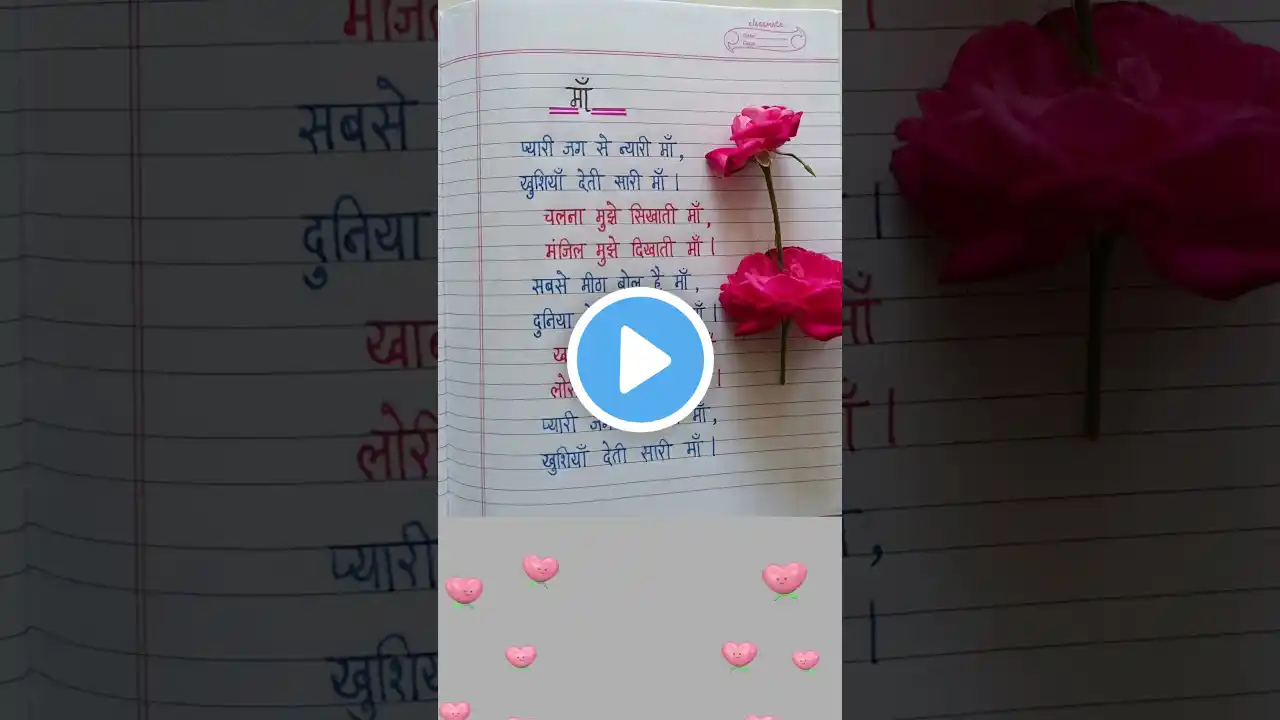 classmate
Date
Page
माँ
प्यारी जग से न्यारी माँ,
खुशियाँ देती सारी माँ।
चलना मुझे सिखाती माँ,
मंजिल मुझे दिखाती माँ।
सबसे मीठा बोल है माँ,
दुनिया माँ।
प्यारी माँ,
खुशियाँ देती सारी माँ।